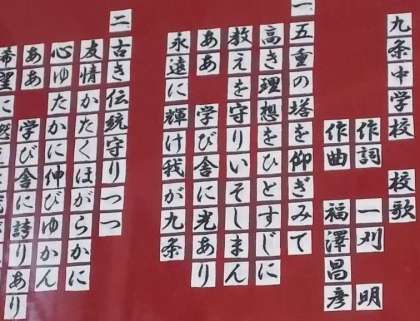 九条中学校 校歌
作詞 一刈 明
作曲 福澤昌彦
一 五重の塔を仰ぎみて
高き理想をひとすじに
教えを守りいそしまん
ああ 学び舎に光あり
永遠に輝け我が九条
二 古き伝統守りつつ
友情かたくほがらかに
心ゆたかに伸びゆかん
ああ 学び舎に誇りあり
希望に